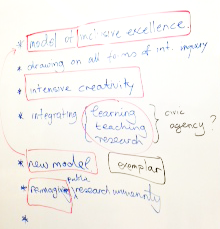 * model of inclusive excellence.
* drawing on all forms of int. inquiry
* intensive creativity
* integrating learning
teaching
research
civic
agency?
* new model exemplar
* reimagining public research university
*